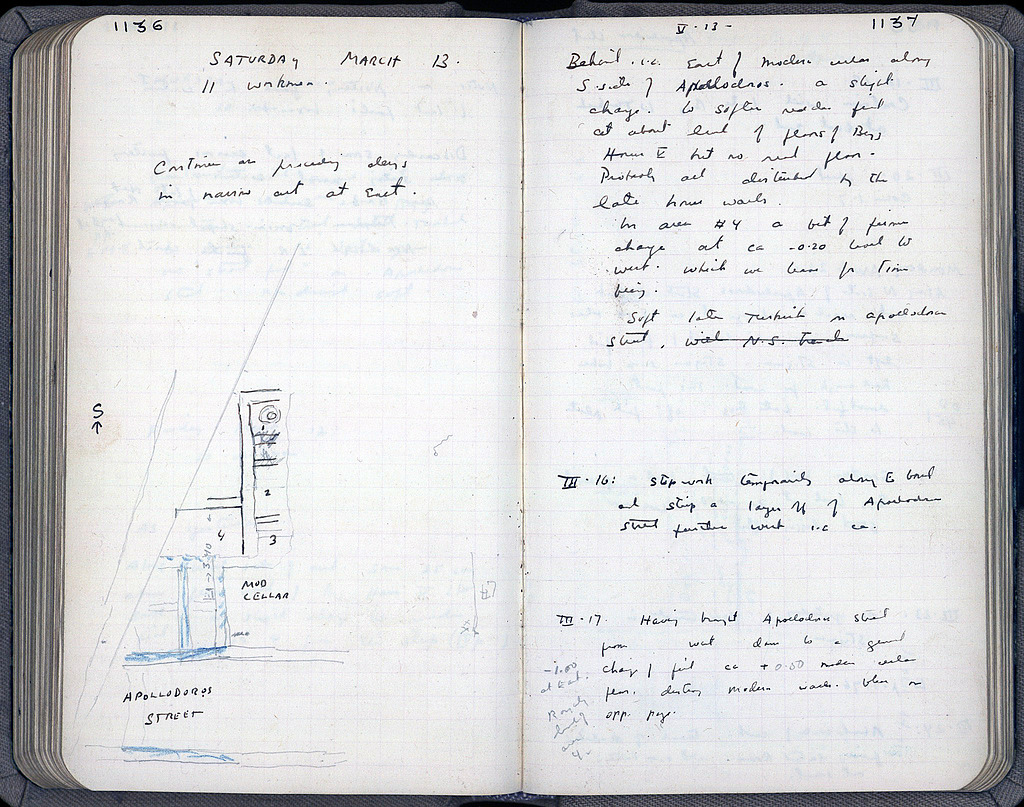 1136
SATURDAY MARCH 13.
11 workmen
Continue as preceding days
in narrow cut at East.
S
2
4
3
MOD
CELLAR
APOLLODOROS
STREET
V-13-
1137
Behind i.e. East of modern wall along
S. side of Apollodoros. a slight
change to softer red fill
at about level of floors of Byz
House but no real floor.
Probably all disturbed by the
late house walls.
In area #4 a bit of firmer
change at ca -0.20 level to
west. which we leave for time
being.
Soft late Turkish in Apollodoros
Street, with N.S. trench
III-16: Stop work temporarily along E
and strip a layer off of Apollodoros
Street further west i.e. ca.
III-17. Having brought Apollodoros Street
from west down to a general
change of fill ca +0.00 under
floor. modern walls. blue on
opp. page.
-1.00
at East.
4